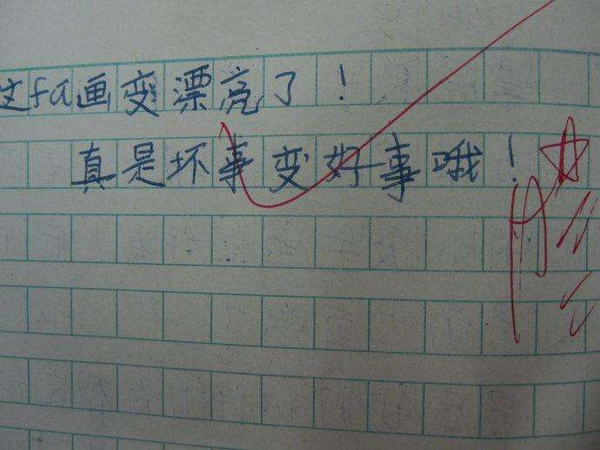 这fu画变漂亮了！
真是坏事变好事哦！